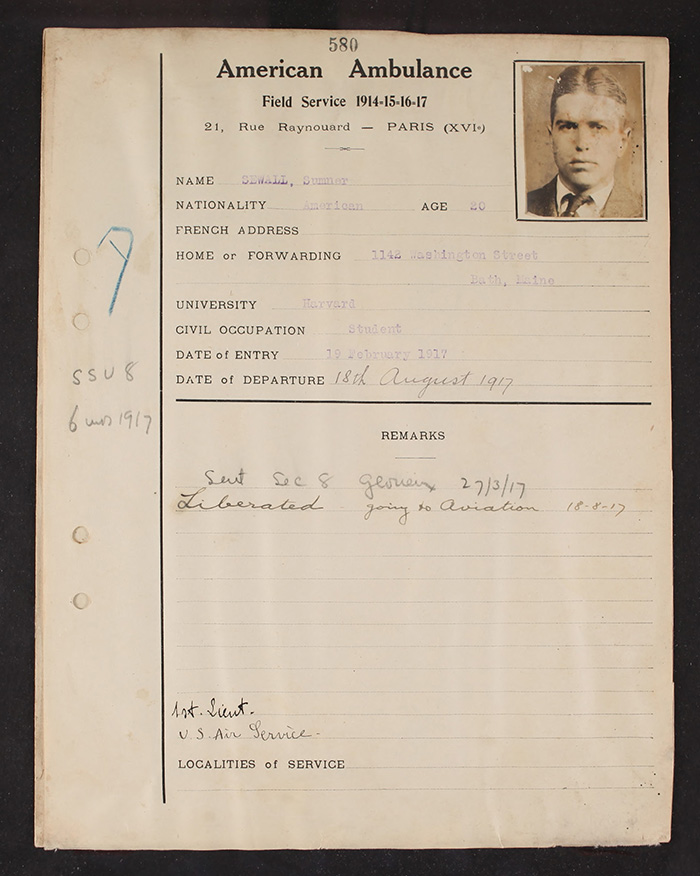 580
American Ambulance
Field Service 1914-15-16-17
21, Rue Raynouard — PARIS (XVIe)
NAME SEWALL, Sumner
NATIONALITY American AGE 20
FRENCH ADDRESS
HOME or FORWARDING 1142 Washington Street
Bath, Maine
UNIVERSITY Harvard
CIVIL OCCUPATION Student
DATE of ENTRY 19 February 1917
DATE of DEPARTURE 18th August 1917
SSU 8
6 mos 1917
REMARKS
Sent Sec 8 27/3/17
Liberated going to Aviation 18-8-17
1st. Lieut.
U.S. Air Service.
LOCALITIES of SERVICE